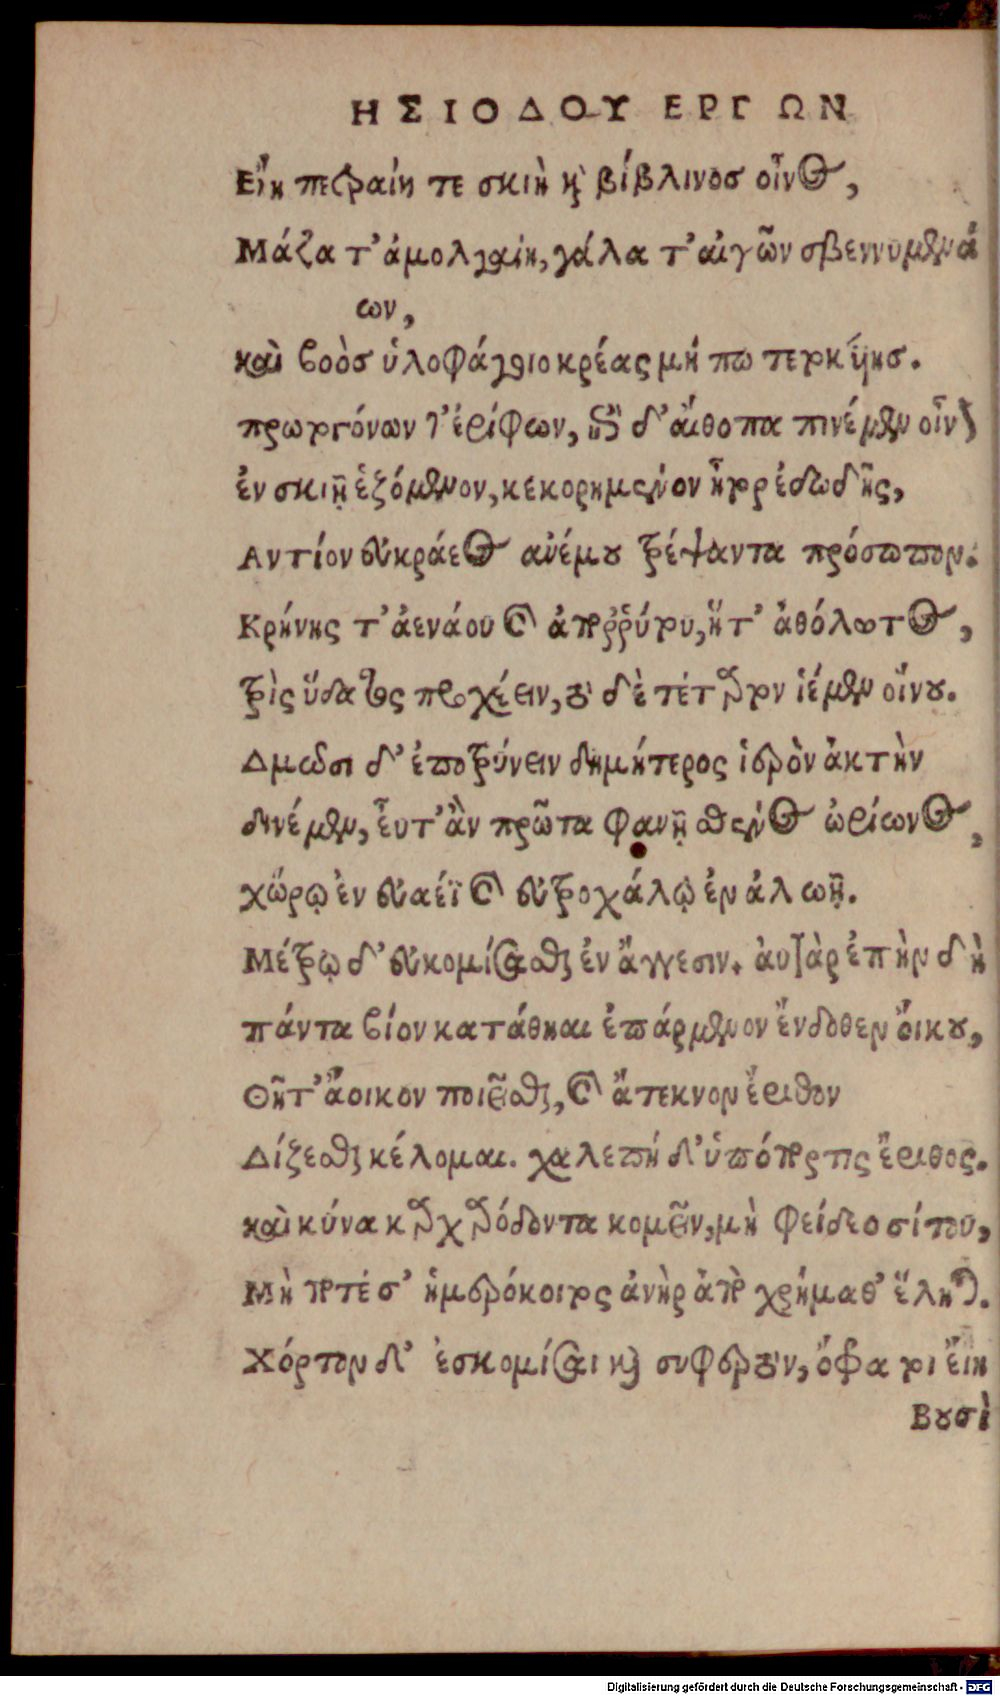 ΗΣΙΟΔΟΥ ΕΡΓΩΝ
Εἴη πετραίη τε σκιὴ καὶ βίβλινοσ οἶνος,
Μάζα τ' ἀμολγαίη, γάλα τ' αἰγῶν σβεννυμενά
ων,
καὶ βοὸσ ὑλοφάγοιο κρέας μή πω τετοκήησ.
πρωτογόνων τ' ἐρίφων, ἐπὶ δ' αἴθοπα πινέμεν οἶνον
ἐν σκιῇ ἑζόμενον, κεκορημένον ἦτορ ἐδωδῆς,
Αντίον εὐκράεος ἀνέμου τρέψαντα πρόσωπον.
Κρήνης τ' ἀενάου καὶ ἀποῤῥύτου, ἥτ' ἀθόλωτος,
τρὶς ὕδατος προχέειν, τὸ δὲ τέτρατον ἱέμεν οἴνου.
Δμωσι δ' ἐποτρύνειν δημήτερος ἱερὸν ἀκτὴν
δινέμεν, εὖτ' ἂν πρῶτα φανῇ σθένος ὠρίωνος,
χώρῳ ἐν εὐαέϊ καὶ εὐτροχάλῳ ἐν ἀλωῇ.
Μέτρῳ δ' εὐκομίσασθαι ἐν ἄγγεσιν. αὐτὰρ ἐπὴν δὴ
πάντα βίον κατάθηαι ἐπάρμενον ἔνδοθεν οἴκου,
Θῆτ' ἄοικον ποιεῖσθαι, καὶ ἄτεκνον ἔριθον
Δίζεσθαι κέλομαι. χαλεπή δ' ὑπόπορτις ἔριθος.
καὶ κύνα καρχαρόδοντα κομεῖν, μὴ φείδεο σίτου,
Μή ποτέ σ' ἡμερόκοιτος ἀνὴρ ἀπὸ χρήμαθ' ἕληται.
Χόρτον δ' ἐσκομίσαι καὶ συρφετὸν, ὄφρα τοι εἴη
Βουσὶ
Digitalisierung gefördert durch die Deutsche Forschungsgemeinschaft - DFG